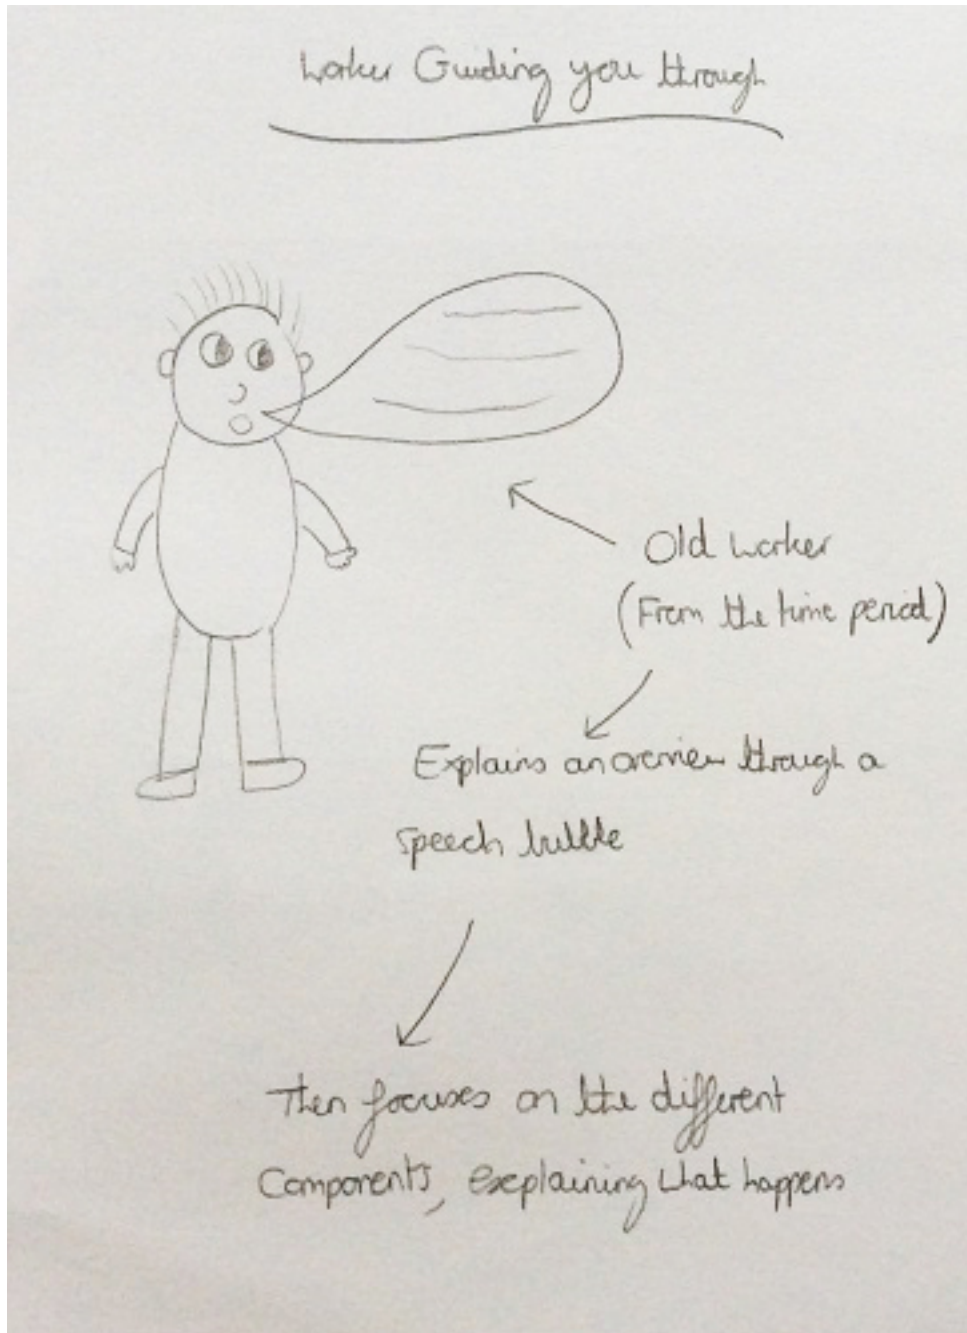 Worker Guiding you through
Old worker
(From the time period)
Explains an overview through a
speech bubble
Then focuses on the different
Components, explaining what happens